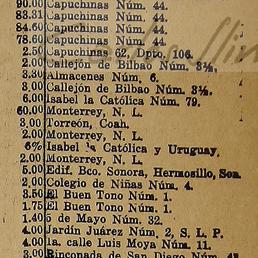 90.00 Capuchinas Núm. 44.
83.31 Capuchinas Núm. 44.
84.60 Capuchinas Núm. 44.
78.60 Capuchinas Núm. 44.
2.50 Capuchinas 62, Dpto. 106.
2.00 Callejón de Bilbao Núm. 3½,
3.30 Almacenes Núm. 6.
3.00 Callejón de Bilbao Núm. 3½,
6.00 Isabel la Católica Núm. 79.
60.00 Monterrey, N. L.
3.00 Torreón, Coah.
2.00 Monterrey, N. L.
6% Isabel la Católica y Uruguay.
2.00 Monterrey, N. L.
5.00 Edif. Bco. Sonora, Hermosillo, Son.
2.00 Colegio de Niñas Núm. 4.
3.50 El Buen Tono Núm. 1.
1.75 El Buen Tono Núm. 1.
1.40 5 de Mayo Núm. 32.
4.00 Jardín Juárez Núm. 2, S. L. P.
4.00 1a. calle Luis Moya Núm. 11.
3.00 Rinconada de San Diego Núm.